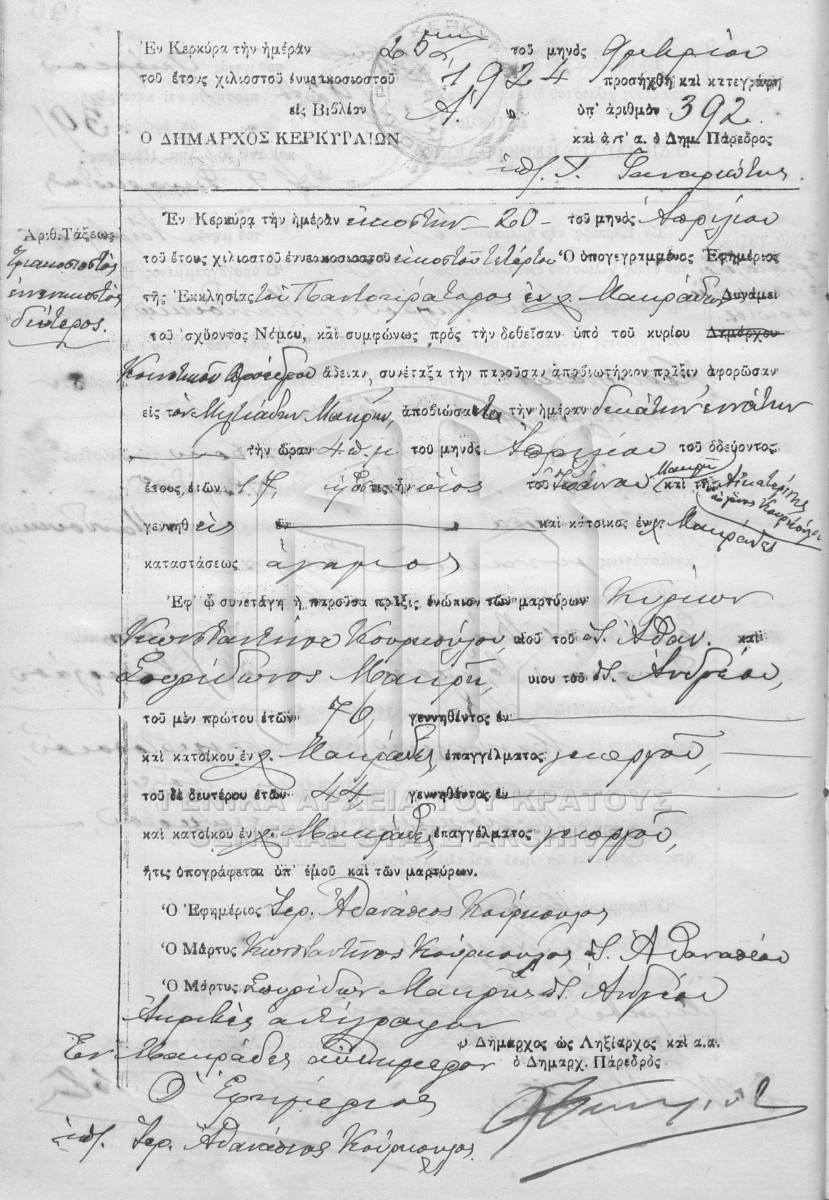 Ἐν Κερκύρα τὴν ἡμέραν 25 τοῦ μηνὸς
τοῦ ἔτους χιλιοστοῦ ἐννεακοσιοστοῦ 1924 προσήχθη καὶ κατεγράφη
εἰς Βιβλίον Α΄. ὑπ' ἀριθμὸν 392.
Ο ΔΗΜΑΡΧΟΣ ΚΕΡΚΥΡΑΙΩΝ καὶ ἀ.π'α. ὁ Δημ. Πάρεδρος
ὑπ. Γ.
Ἐν Κερκύρα τὴν ἡμέραν εἰκοστὴν - 20 - τοῦ μηνὸς Ἀπριλίου
Ἀριθ. Τάξεως
Τριακοσιοστὸς
ἐνενηκοστὸς
δεύτερος.
τοῦ ἔτους χιλιοστοῦ ἐννεακοσιοστοῦ εἰκοστοῦ τετάρτου Ὁ ὑπογεγραμμένος Ἐφημέριος
τῆς Ἐκκλησίας τοῦ Παντοκράτορος ἐν χ. Μακράδων Δυνάμει
τοῦ ἰσχύοντος Νόμου, καὶ συμφώνως πρὸς τὴν δοθεῖσαν ὑπὸ τοῦ κυρίου Δημάρχου
Κοινοτικοῦ Προέδρου ἄδειαν, συνέταξα τὴν παροῦσαν ἀποβιωτήριον πρᾶξιν ἀφορῶσαν
εἰς τὸν Μιλτιάδην Μακρῆν, ἀποβιώσαντα τὴν ἡμέραν δεκάτην ἐννάτην
τὴν ὥραν 4 π.μ. τοῦ μηνὸς Ἀπριλίου τοῦ ὁδεύοντος
ἔτους, ἐτῶν 17, ὅστις ἦν υἱὸς τοῦ Ἰωάννου Μακρῆ καὶ τῆς Αἰκατερίνης
τὸ γένος Κουρκούλου
γεννηθεὶς ἐν καὶ κάτοικος ἐν χ. Μακράδες
καταστάσεως ἄγαμος
Ἐφ' ᾧ συνετάγη ἡ παροῦσα πρᾶξις ἐνώπιον τῶν μαρτύρων Κυρίων
Κωνσταντῖνος Κουρκούλου, υἱοῦ τοῦ π. Ἀθαν. καὶ
Σπυρίδωνος Μακρῆ, υἱοῦ τοῦ π. Ἀνδρέου,
τοῦ μὲν πρώτου ἐτῶν 70, γεννηθέντος ἐν
καὶ κατοίκου ἐν χ. Μακράδες ἐπαγγέλματος γεωργοῦ,
τοῦ δὲ δευτέρου ἐτῶν 44 γεννηθέντος ἐν
ΓΕΝΙΚΑ ΑΡΧΕΙΑ ΤΟΥ ΚΡΑΤΟΥΣ
καὶ κατοίκου ἐν χ. Μακράδες, ἐπαγγέλματος γεωργοῦ,
GENERAL STATE ARCHIVES
ἥτις ὑπογράφεται ὑπ' ἐμοῦ καὶ τῶν μαρτύρων.
Ὁ Ἐφημέριος Ἱερ. Ἀθανάσιος Κούρκουλος
Ὁ Μάρτυς Κωνσταντῖνος Κούρκουλος π. Ἀθανασίου
Ὁ Μάρτυς Σπυρίδων Μακρῆς π. Ἀνδρέου
Ἀκριβὲς ἀντίγραφον
Ἐν Μακράδες αὐθημερὸν
Ὁ Δήμαρχος ὡς Ληξίαρχος καὶ ἀ.α.
ὁ Δημαρχ. Πάρεδρος
Ὁ Ἐφημέριος
ὑπ. Ἱερ. Ἀθανάσιος Κούρκουλος